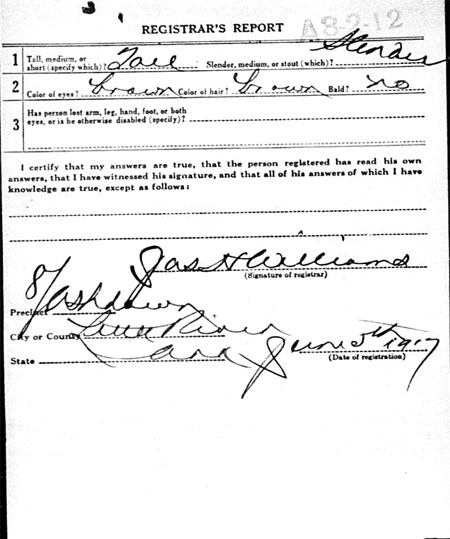 REGISTRAR'S REPORT A3-2-12
1 Tall, medium, or short (specify which)? Tall Slender, medium, or stout (which)? Slender
2 Color of eyes? brown Color of hair? brown Bald? no
3 Has person lost arm, leg, hand, foot, or both eyes, or is he otherwise disabled (specify)?
I certify that my answers are true, that the person registered has read his own
answers, that I have witnessed his signature, and that all of his answers of which I have
knowledge are true, except as follows:
Jas H Williams
(Signature of registrar)
Precinct Ashdown
City or County Little River
State Ark June 5th 1917
(Date of registration)